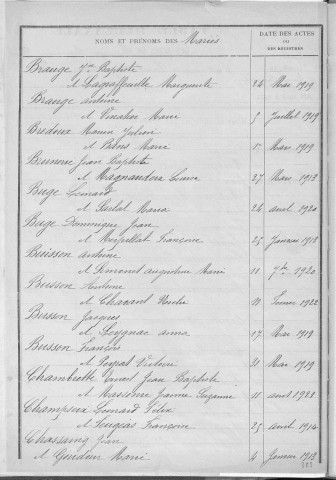 NOMS ET PRÉNOMS DES Mariés
DATE DES ACTES
OU
DES REGISTRES
Brauge Jn Baptiste
et Lagraffeuille Marguerite 24 Mai 1919
Brauge Antoine
et Vinatier Marie 5 Juillet 1919
Bredoux Julien
et Bans Marie 15 Mars 1919
Jean Baptiste
et Magnaudeix Louise 27 Mai 1913
Buge Léonard
et Parlat Maria 24 avril 1920
Buge Dominique Jean
et Françoise 25 Janvier 1918
Buisson Antoine
et Simonet Augustine Marie 11 7bre 1920
Buisson Antoine
et Chacant 11 Février 1922
Buisson Jacques
et Leygnac Anna 17 Mai 1919
Buisson François
et Peyrat Victorine 31 Mai 1919
Chambrette Ernest Jean Baptiste
et Massonie Jeanne Suzanne 11 avril 1923
Champeix Léonard Félix
et Françoise 25 avril 1914
Chassaing Jean
et Goudoux Marie 4 Janvier 1913